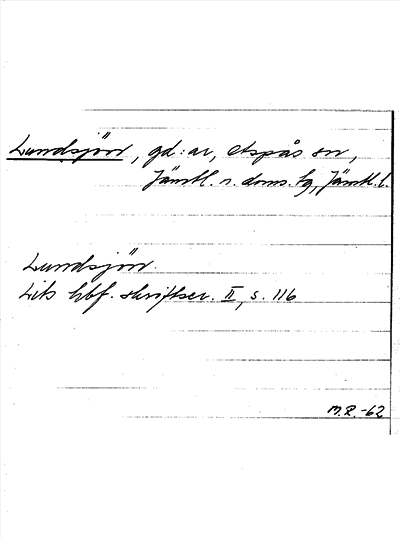 Lundsjön, gd:ar, Aspås sn,
Jämtl. n. doms. tg, Jämtl. l.
Lundsjön.
Lits hbf. skriftser. II, s. 116
M.R.-62